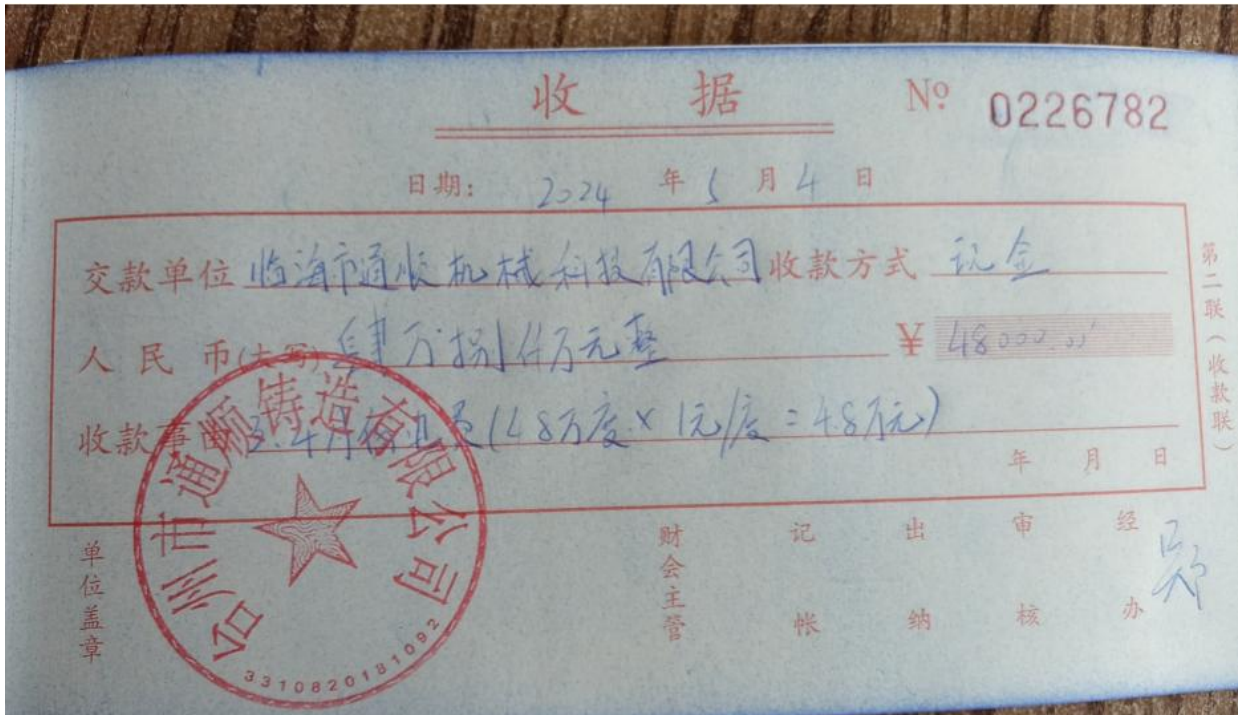 收 据 Nº 0226782
日期: 2024 年 5 月 4 日
交款单位 临海市通 机械科技有限公司 收款方式 现金
人民币(大写) 肆万捌仟万元整 ¥ 48000.00
收款事由 3.4月 费(4.8万度×1元/度=4.8万元)
年 月 日
第二联(收款联)
单位盖章
财会主管
记帐
出纳
审核
经办
台州市通顺铸造有限公司
3310820181092